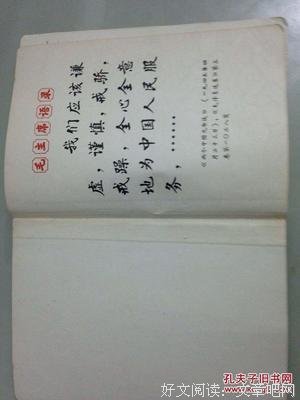 毛主席语录
我们应该谦
虚，谨慎，戒骄，
戒躁，全心全意
地为中国人民服
务，……
《两个中国之命运》（一九四五年四
月二十三日），《毛泽东选集》第三
卷第一〇二八页
孔夫子旧书网
好文阅读：文章吧网